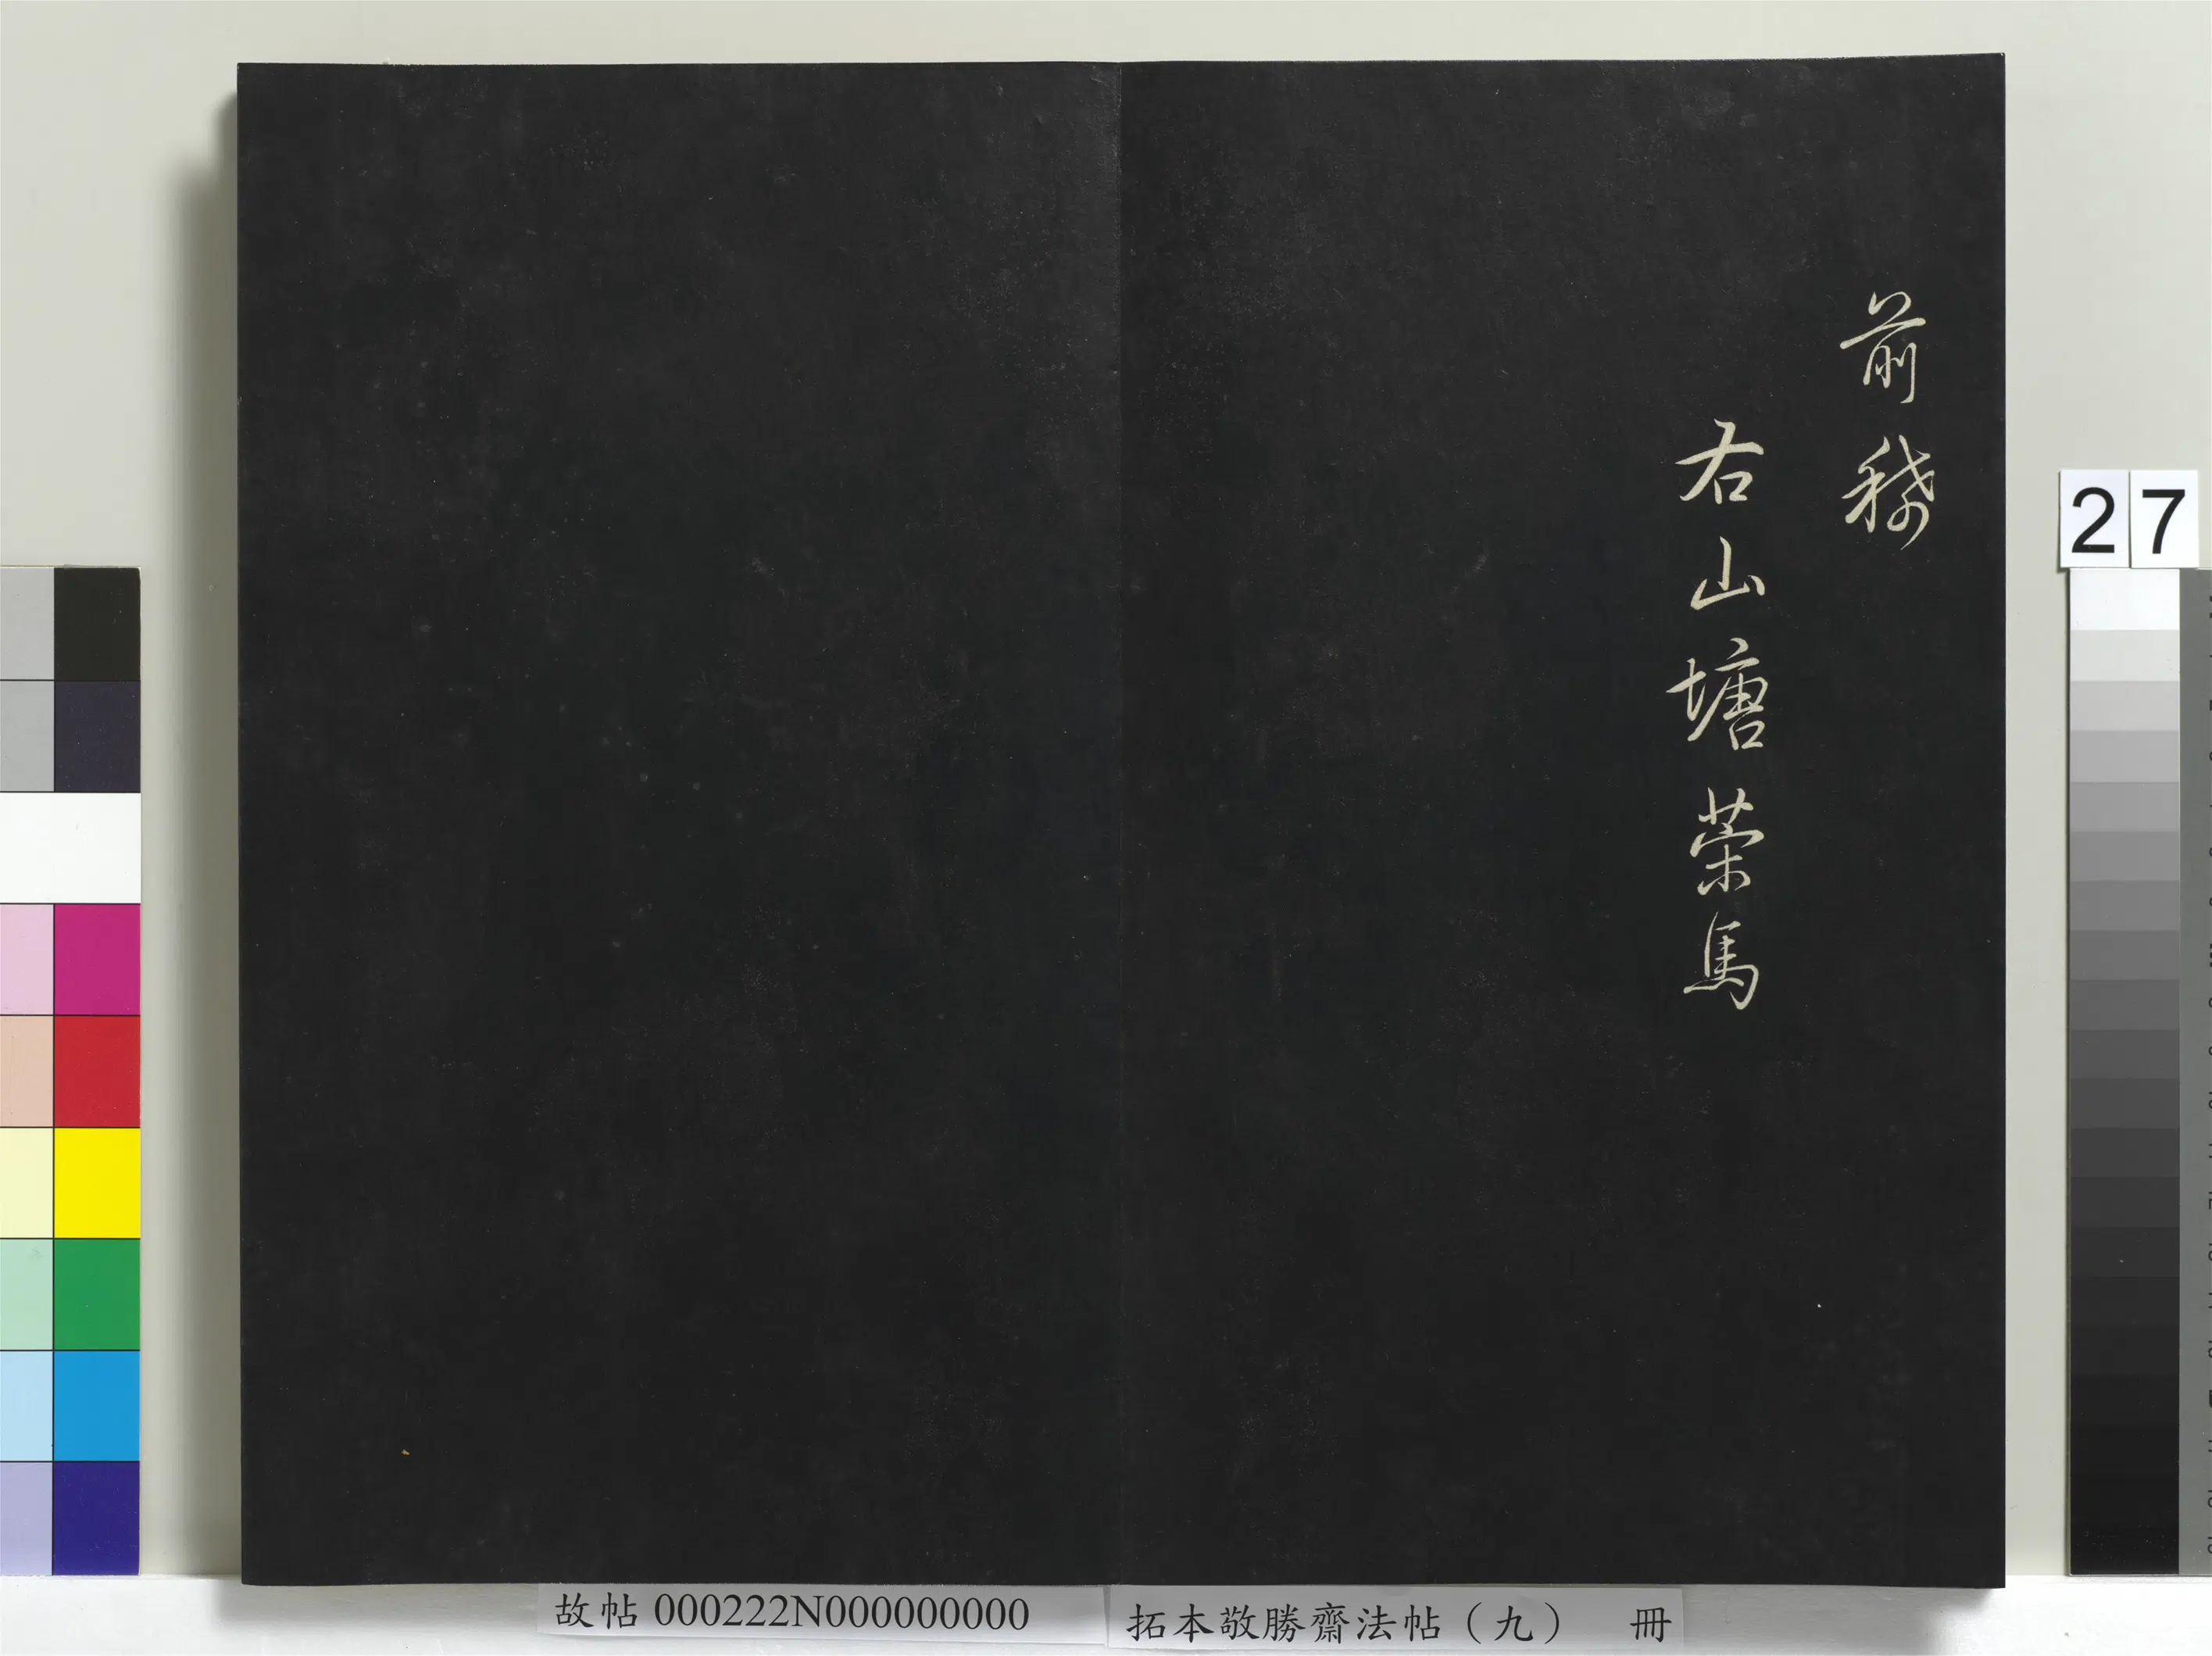 前
右山塘策馬
27
故帖 000222N000000000
拓本敬勝齋法帖（九） 冊